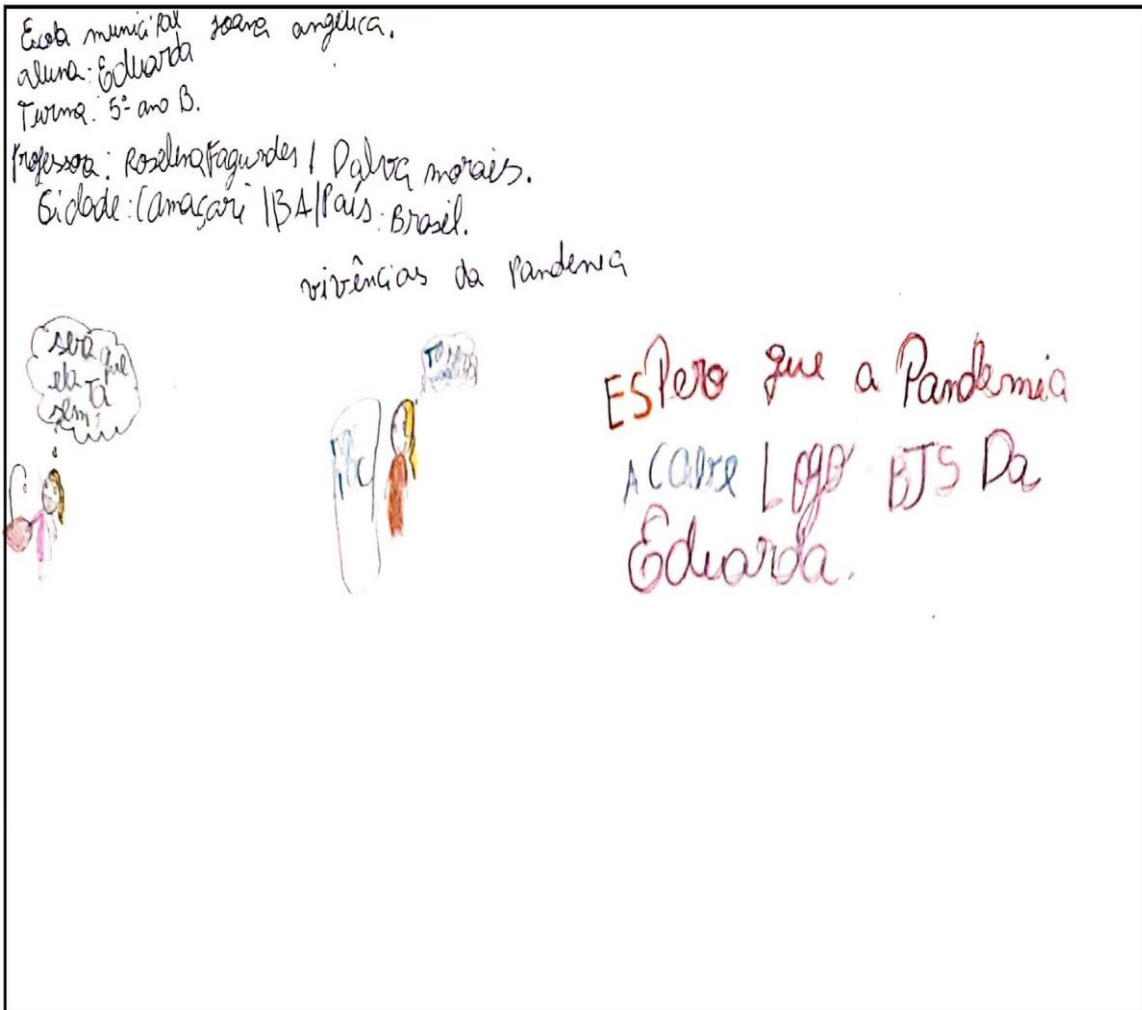 Escola municipal Joana angélica.
aluna: Eduarda
Turma: 5º ano B.
Professora: Roselina Fagundes / Dalva morais.
Cidade: Camaçari / BA / País: Brasil.
vivências da Pandemia
será que
ela Tá
sem
ESPero que a Pandemia
ACABe LOgO BJS Da
Eduarda.